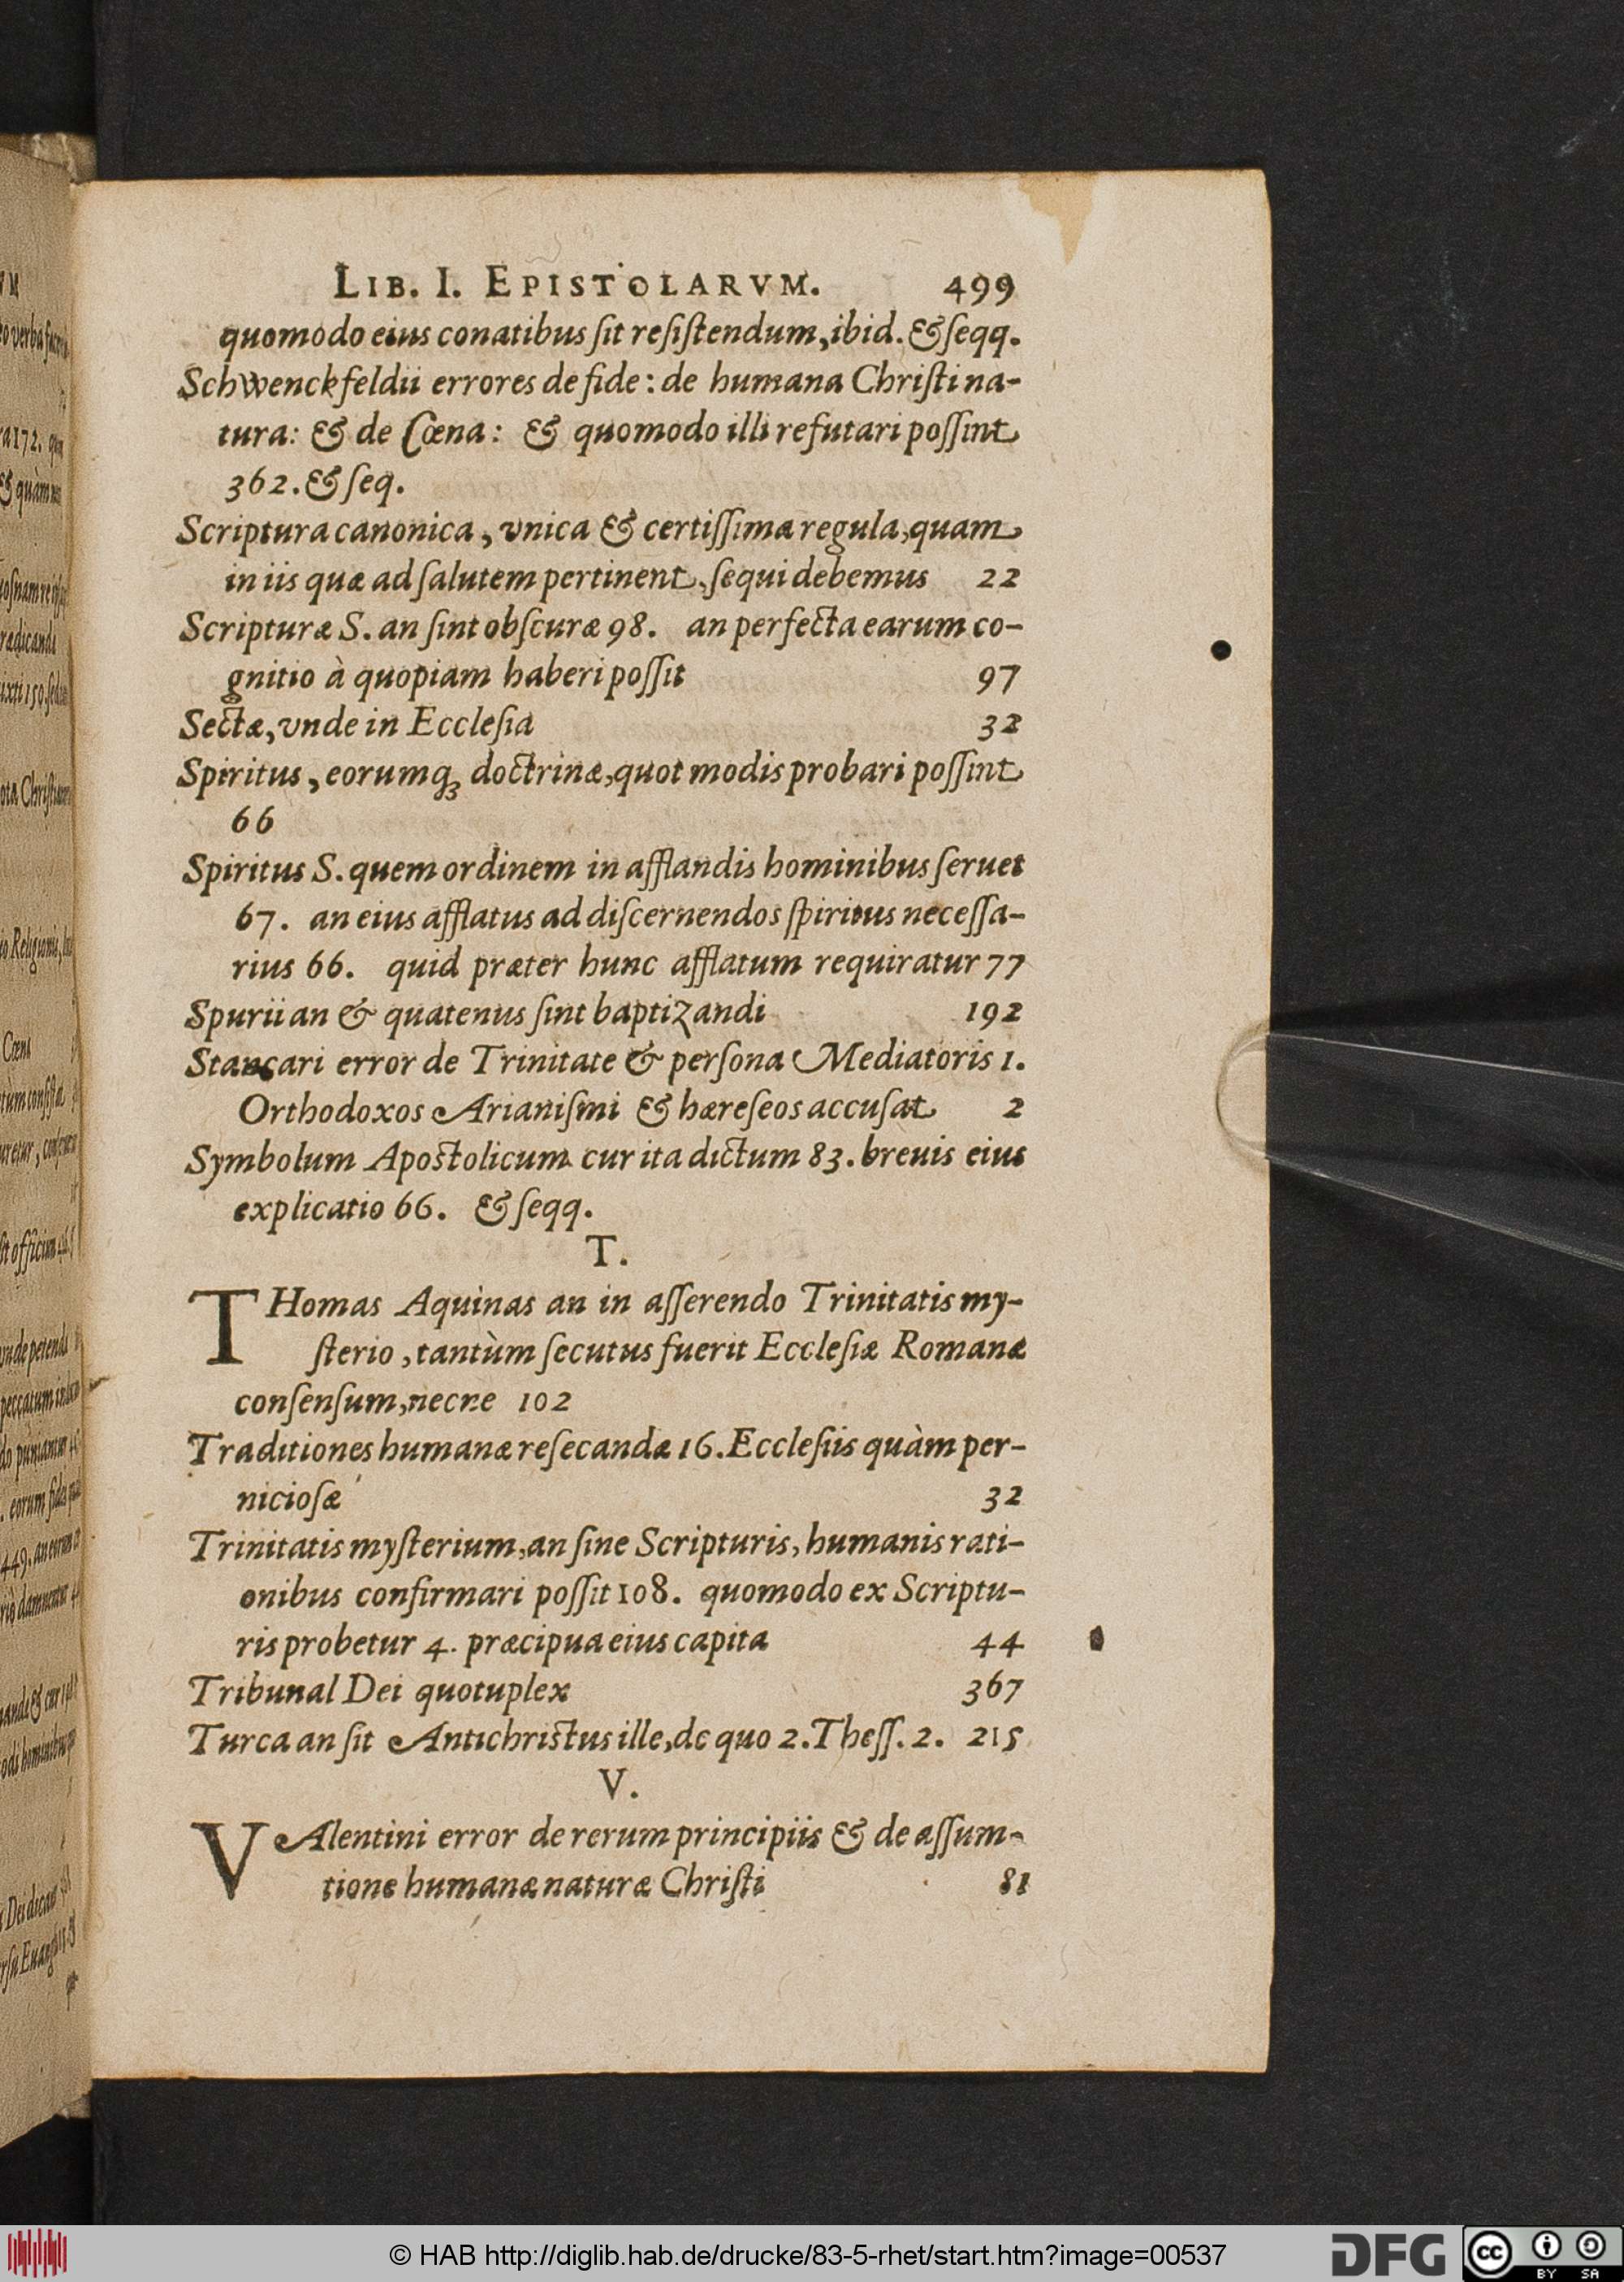 LIB. I. EPISTOLARVM. 499
quomodo eius conatibus ſit reſiſtendum, ibid. & ſeqq.
Schwenckfeldii errores de fide: de humana Chriſti na-
tura: & de Cœna: & quomodo illi refutari poſſint
362. & ſeq.
Scriptura canonica, vnica & certiſſima regula, quam
in iis quæ ad ſalutem pertinent, ſequi debemus 22
Scripturæ S. an ſint obſcuræ 98. an perfecta earum co-
gnitio à quopiam haberi poſſit 97
Sectæ, vnde in Eccleſia 32
Spiritus, eorumq; doctrinæ, quot modis probari poſſint
66
Spiritus S. quem ordinem in afflandis hominibus ſeruet
67. an eius afflatus ad diſcernendos ſpiritus neceſſa-
rius 66. quid præter hunc afflatum requiratur 77
Spurii an & quatenus ſint baptizandi 192
Stancari error de Trinitate & perſona Mediatoris 1.
Orthodoxos Arianiſmi & hæreſeos accuſat 2
Symbolum Apostolicum cur ita dictum 83. breuis eius
explicatio 66. & ſeqq.
T.
THomas Aquinas an in aſſerendo Trinitatis my-
ſterio, tantùm ſecutus fuerit Eccleſiæ Romanæ
conſenſum, necne 102
Traditiones humanæ reſecandæ 16. Eccleſiis quàm per-
nicioſæ 32
Trinitatis myſterium, an ſine Scripturis, humanis rati-
onibus confirmari poſſit 108. quomodo ex Scriptu-
ris probetur 4. præcipua eius capita 44
Tribunal Dei quotuplex 367
Turca an ſit Antichristus ille, de quo 2. Theſſ. 2. 215
V.
VAlentini error de rerum principiis & de aſſum-
tione humanæ naturæ Chriſti 81
© HAB http://diglib.hab.de/drucke/83-5-rhet/start.htm?image=00537
DFG
cc BY SA